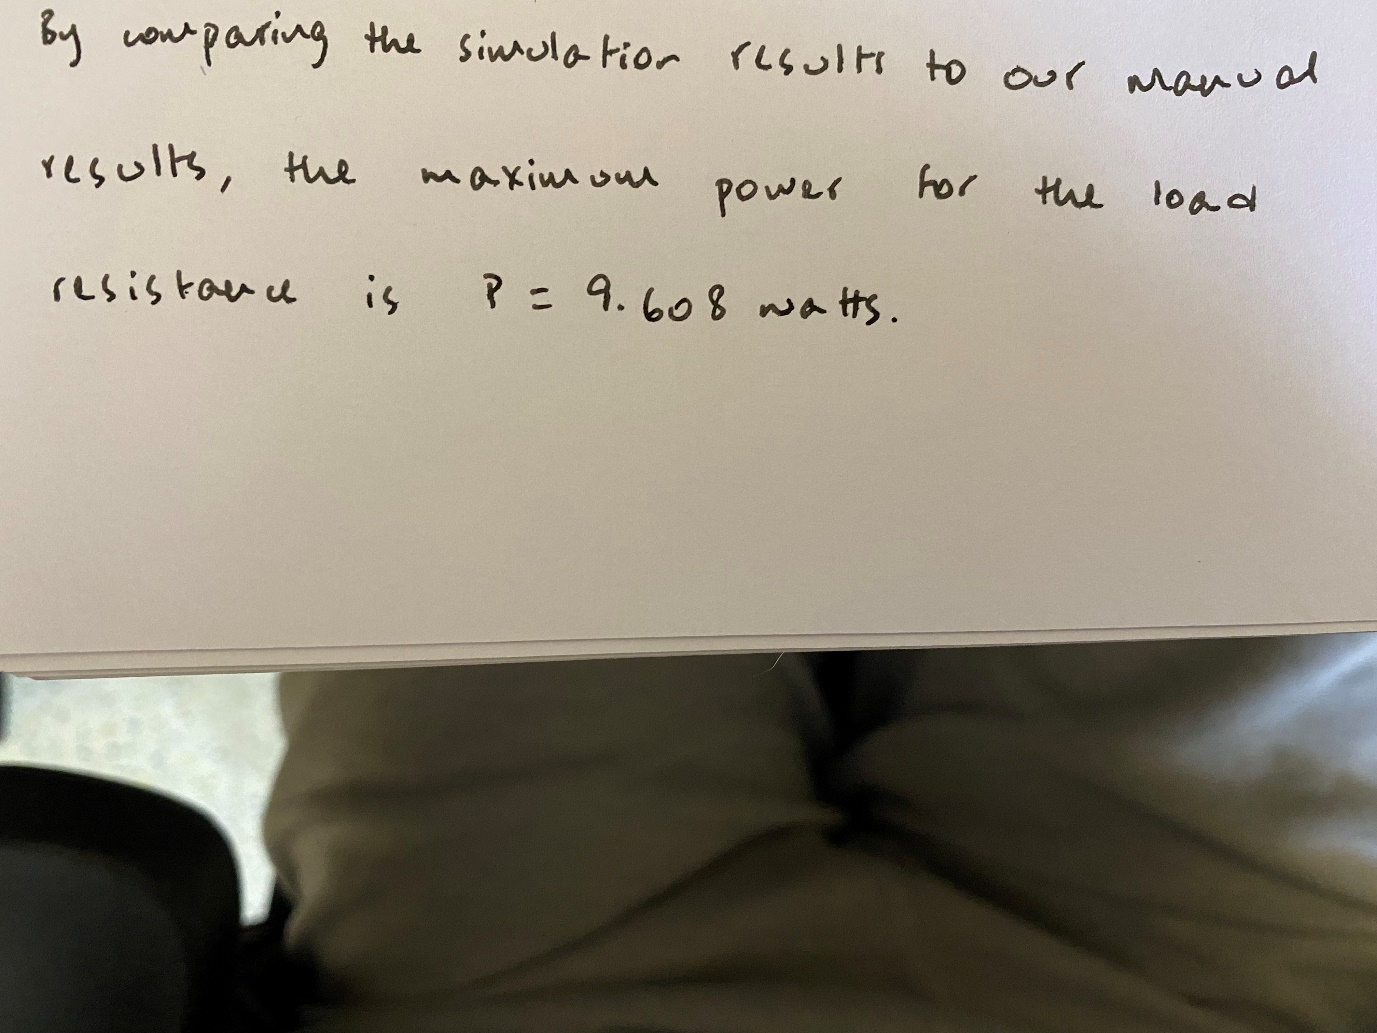 By comparing the simulation results to our manual
results, the maximum power for the load
resistance is P = 9.608 watts.